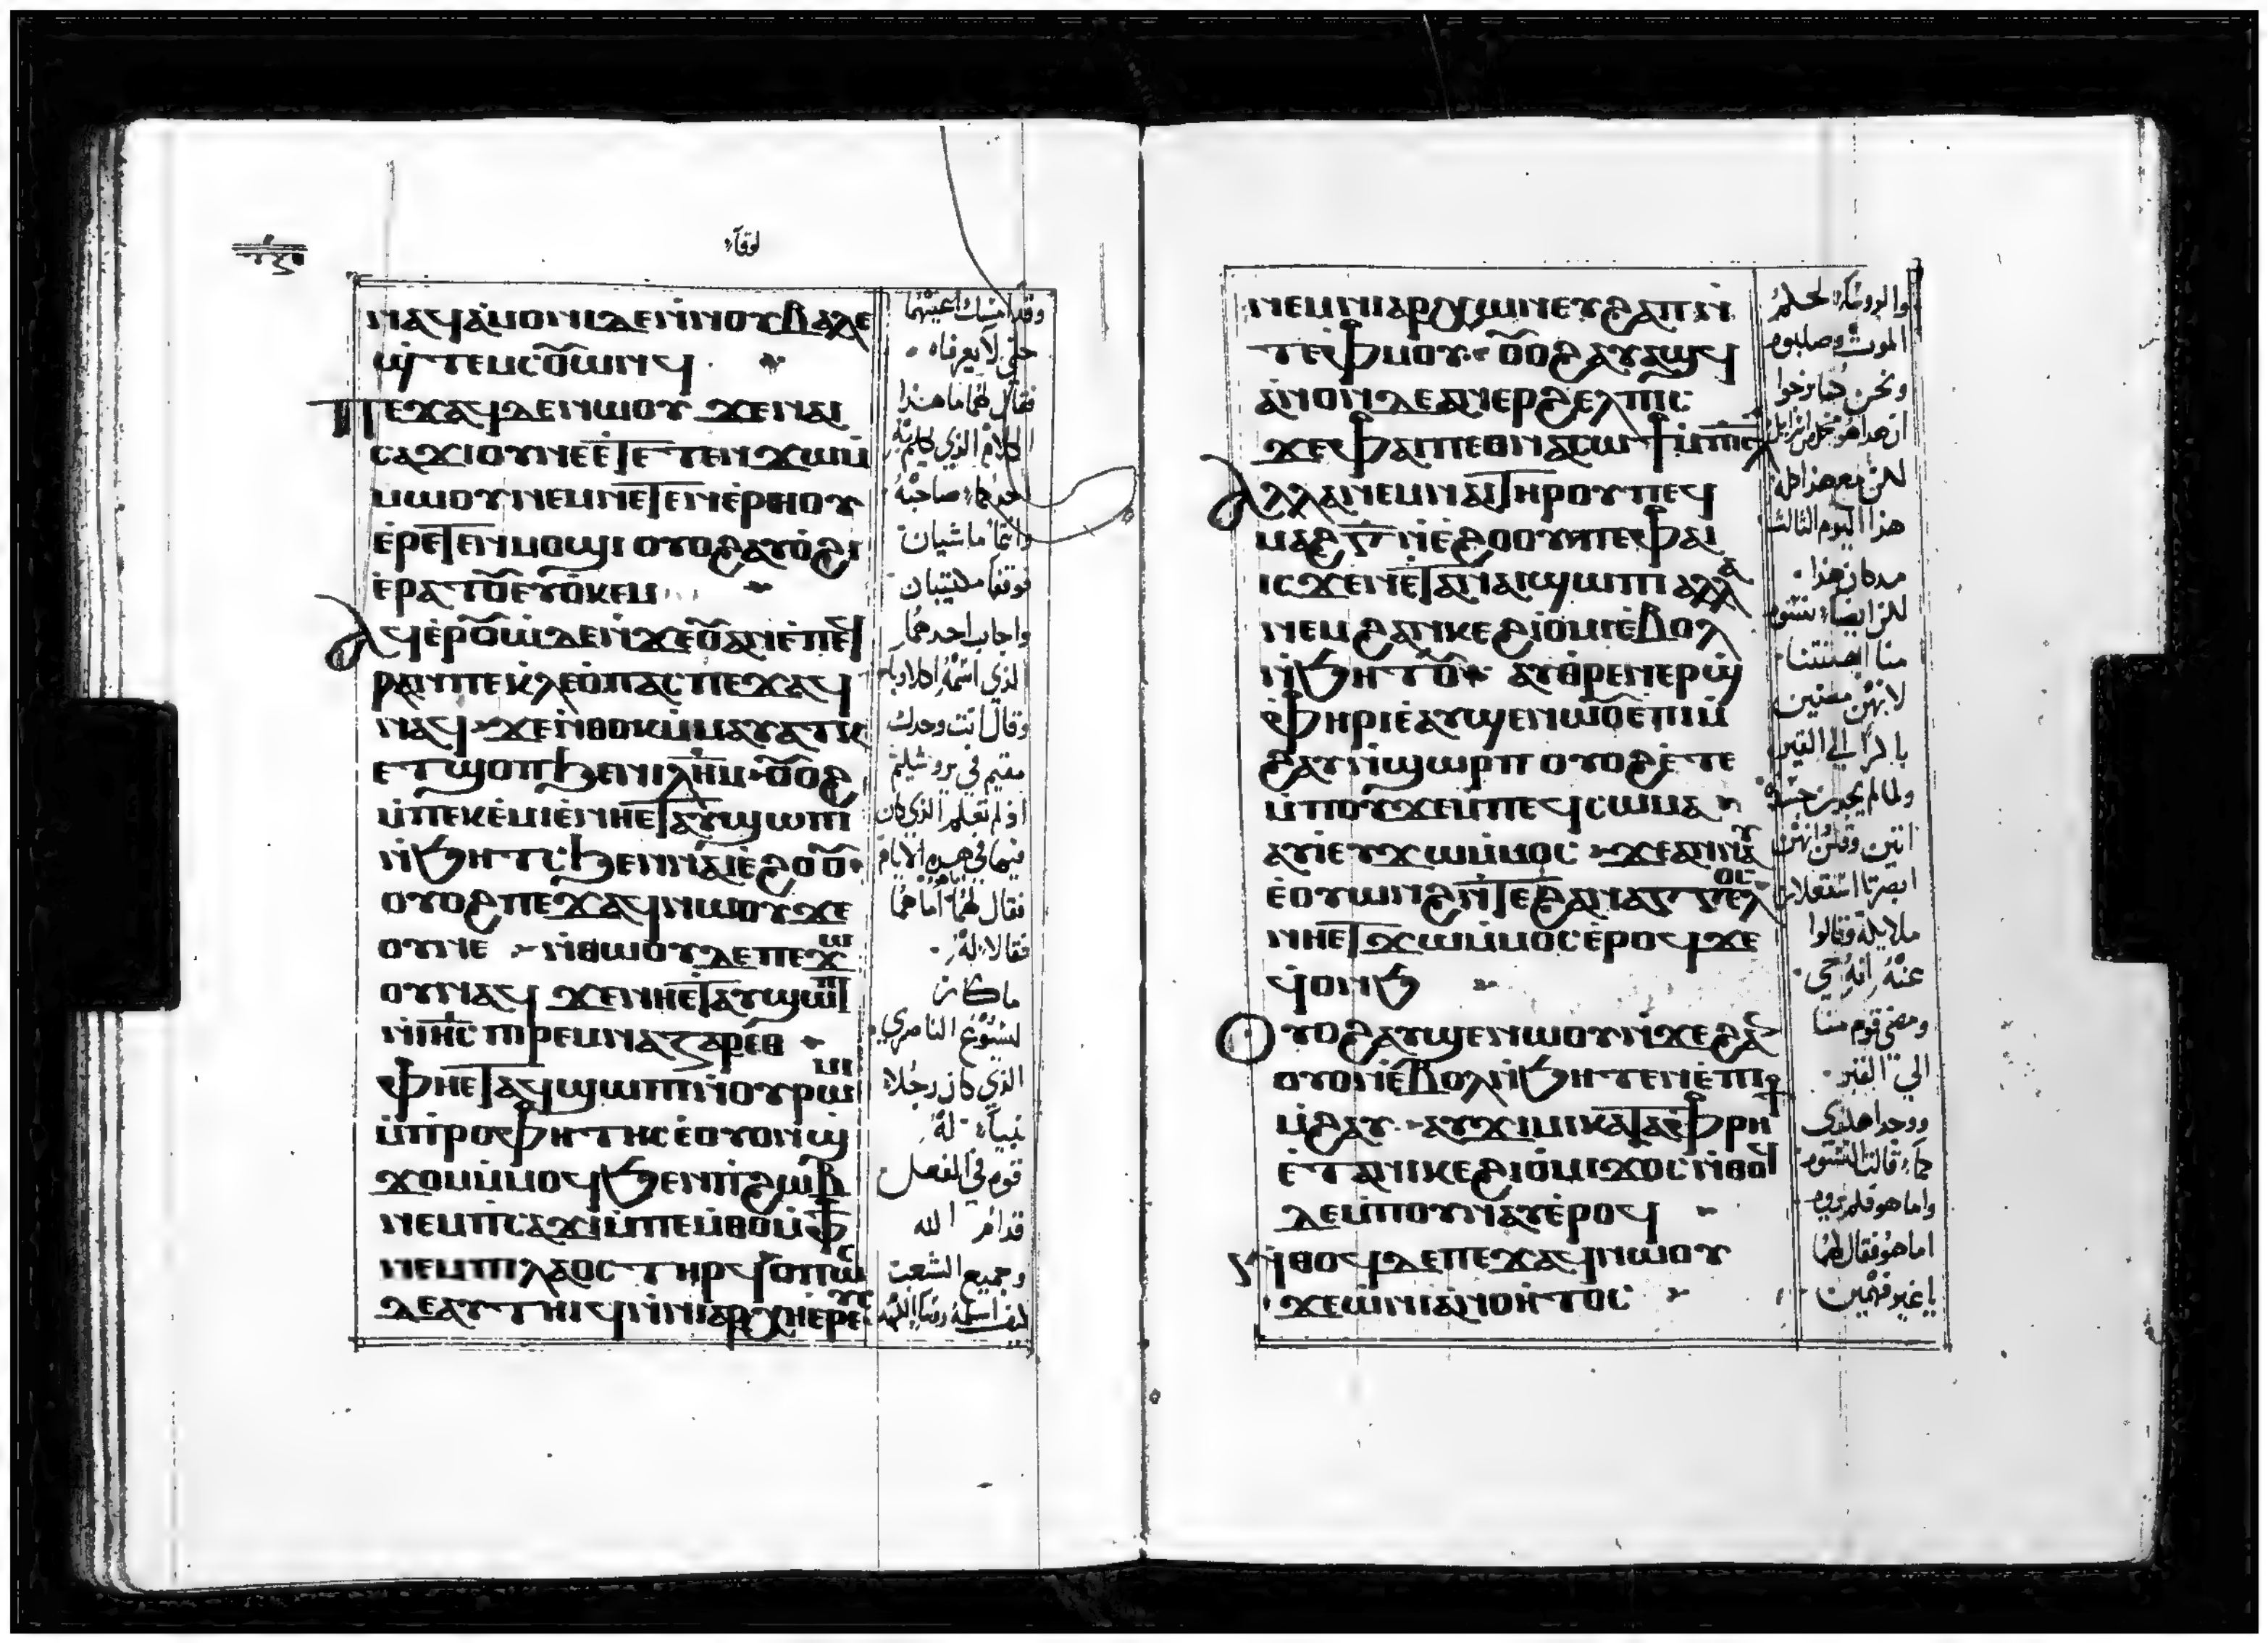 لوقا
ⲛⲁϥⲁⲙⲟⲛⲓⲇⲉⲛ̀ⲛⲟⲩⲃⲁⲗⲉ
ϣ̀ⲧⲉⲙⲥⲟ̅ⲱⲛϥ
ⲡⲉϫⲁϥⲇⲉⲛⲱⲟⲩ ϫⲉⲛⲁⲓ
ⲥⲁϫⲓⲟⲩⲛⲉⲉ̀ⲧⲉⲧⲉⲛϫⲱⲙ̀
ⲙⲱⲟⲩⲛⲉⲙⲛⲉⲧⲉⲛⲉ̀ⲣⲏⲟⲩ
ⲉ̀ⲣⲉⲧⲉⲛⲙⲟϣⲓ ⲟⲩⲟϩⲁⲩⲟ̀ϩⲓ
ⲉ̀ⲣⲁⲧⲟ̅ⲉⲩⲟ̀ⲕⲉⲙ
ⲁϥⲉ̀ⲣⲟ̅ⲱ̀ⲇⲉⲛ̀ϫⲉⲟ̅ⲁⲓⲉ̀ⲡⲉϥ
ⲣⲁⲛⲡⲉ ⲕ̀ⲗⲉⲟ̀ⲡⲁⲥ ⲡⲉϫⲁϥ
ⲛⲁϥ ϫⲉⲛ̀ⲑⲟⲕⲙ̀ⲙⲁⲩⲁⲧⲕ
ⲉⲧϣⲟⲡϧⲉⲛⲓ̅ⲗ̅ⲏ̅ⲙ̅ ⲟ̅ⲟϩ
ⲙ̀ⲡⲉⲕⲉ̀ⲙⲓⲉ̀ⲛⲏⲉⲧⲁⲩϣⲱⲡⲓ
ⲛ̀ϧⲏⲧⲥ ϧⲉⲛⲛⲁⲓⲉ̀ϩⲟⲟ̅
ⲟⲩⲟϩⲡⲉϫⲁϥⲛⲱⲟⲩϫⲉ
ⲟⲩⲛⲉ ⲛ̀ⲑⲱⲟⲩⲇⲉⲡⲉϫⲱ
ⲟⲩⲛⲁϥ ϫⲉⲛⲏⲉⲧⲁⲩϣⲱⲡⲓ
ⲛ̀ⲓ̅ⲏ̅ⲥ̅ ⲡⲓⲣⲉⲙⲛⲁⲍⲁⲣⲉⲑ
ⲫⲏⲉⲧⲁϥϣⲱⲡⲓⲛ̀ⲟⲩⲣⲱⲙⲓ
ⲙ̀ⲡ̀ⲣⲟⲫⲏⲧⲏⲥ ⲉ̀ⲟⲩⲟⲛϣ̀
ϫⲟⲙ̀ⲙⲟϥϧⲉⲛⲡ̀ϩⲱⲃ
ⲛⲉⲙⲡ̀ⲥⲁϫⲓⲙ̀ⲡⲉⲙ̀ⲑⲟⲙ̀ⲫϯ
ⲛⲉⲙⲡⲓⲗⲁⲟⲥ ⲧⲏⲣϥ ⲟⲡⲱⲥ
ⲇⲉⲁⲩⲧⲏⲓϥⲛ̀ⲛⲓⲁⲣⲭⲏⲉ̀ⲣⲉⲩⲥ
وقد امسك اعينهما
حتى لا يعرفاه
فقال لهما ما هذا
الكلام الذي كلم به
احدكما صاحبه
وانتما ماشيان
فوقفا مكتيبان
واجاب احدهما
الذي اسمه اكلاوبا
وقال انت وحدك
مقيم في يروشليم
اذ لم تعلم الذي كان
فيها في هذه الايام
فقال لهما ما هما
فقالا له
ما كان
لشوع الناصري
الذي كان رجلا
نبيا له
قوم في الفعل
قدام الله
وجميع الشعب
ⲛⲉⲙⲛⲓⲁⲣⲭⲱⲛⲉⲩϩⲁⲡ ⲛ̀
ⲧⲉⲫ̀ⲙⲟⲩ ⲟ̅ⲟϩⲁⲩⲁϣϥ
ⲁⲛⲟⲛⲇⲉⲁⲛⲉⲣϩⲉⲗⲡⲓⲥ
ϫⲉⲫⲁⲓⲡⲉⲑⲛⲁⲥⲱϯⲙ̀ⲡⲓⲥ̅ⲗ̅
ⲁⲗⲗⲁⲛⲉⲙⲛⲁⲓⲧⲏⲣⲟⲩⲡⲉϥ
ⲙⲁϩⲅ̅ⲛ̀ⲉ̀ϩⲟⲟⲩⲡⲉⲫⲁⲓ
ⲓⲥϫⲉⲛⲉⲧⲁⲛⲁⲓϣⲱⲡⲓ ⲁⲗⲗⲁ
ⲛⲉⲙϩⲁⲛⲕⲉϩⲓⲟ̀ⲙⲓⲉ̀ⲃⲟⲗ
ⲛ̀ϧⲏⲧⲟ̅ ⲁⲩⲑⲣⲉⲛⲉⲣϣ̀
ⲫⲏⲣⲓⲉ̀ⲁⲩϣⲉⲛⲱⲟ̅ⲉ̀ⲡⲓⲙ̀
ϩⲁⲩⲛ̀ϣⲱⲣⲡ ⲟⲩⲟϩⲉ̀ⲧⲉ
ⲙ̀ⲡⲟⲩϫⲉⲙⲡⲉϥⲥⲱⲙⲁ
ⲁⲩⲓ̀ⲉⲩϫⲱⲙ̀ⲙⲟⲥ ϫⲉⲁⲛⲛⲁⲩ
ⲉ̀ⲟⲩⲱⲛϩⲛ̀ⲧⲉϩⲁⲛⲁⲅⲅⲉⲗⲟⲥ
ⲛⲏⲉⲧϫⲱⲙ̀ⲙⲟⲥ ⲉ̀ⲣⲟϥϫⲉ
ϥ̀ⲟⲛϧ
ⲟⲩⲟϩⲁⲩϣⲉⲛⲱⲟⲩⲛ̀ϫⲉϩⲁⲛ
ⲟⲩⲟⲛⲉ̀ⲃⲟⲗⲛ̀ϧⲏⲧⲉⲛⲉ̀ⲡⲓ
ⲙ̀ϩⲁⲩ ⲁⲩϫⲓⲙⲓⲕⲁⲧⲁⲫ̀ⲣⲏϯ
ⲉ̀ⲧⲁⲛⲓⲕⲉϩⲓⲟ̀ⲙⲓϫⲟⲥ ⲛ̀ⲑⲟϥ
ⲇⲉⲙ̀ⲡⲟⲩⲛⲁⲩⲉ̀ⲣⲟϥ
ⲛ̀ⲑⲟϥⲇⲉⲡⲉϫⲁϥⲛⲱⲟⲩ
ϫⲉⲱ̀ⲛⲓⲁⲛⲟⲏⲧⲟⲥ
والروسا لحكم
الموت وصلبوه
ونحن كنا نرجوا
لكن مع هذا كله
هذا اليوم الثالث
مذ كان هذا
لكن ايضا نسوه
منا ادهشننا
باكرا الى القبر
ملايكة وقالوا
عنه انه حي
ومضى قوم منا
الى القبر
ووجدا هكذى
كما قالت النسوه
واما هو فلم يروه
اما هو فقال لهما
يا غير فهمين